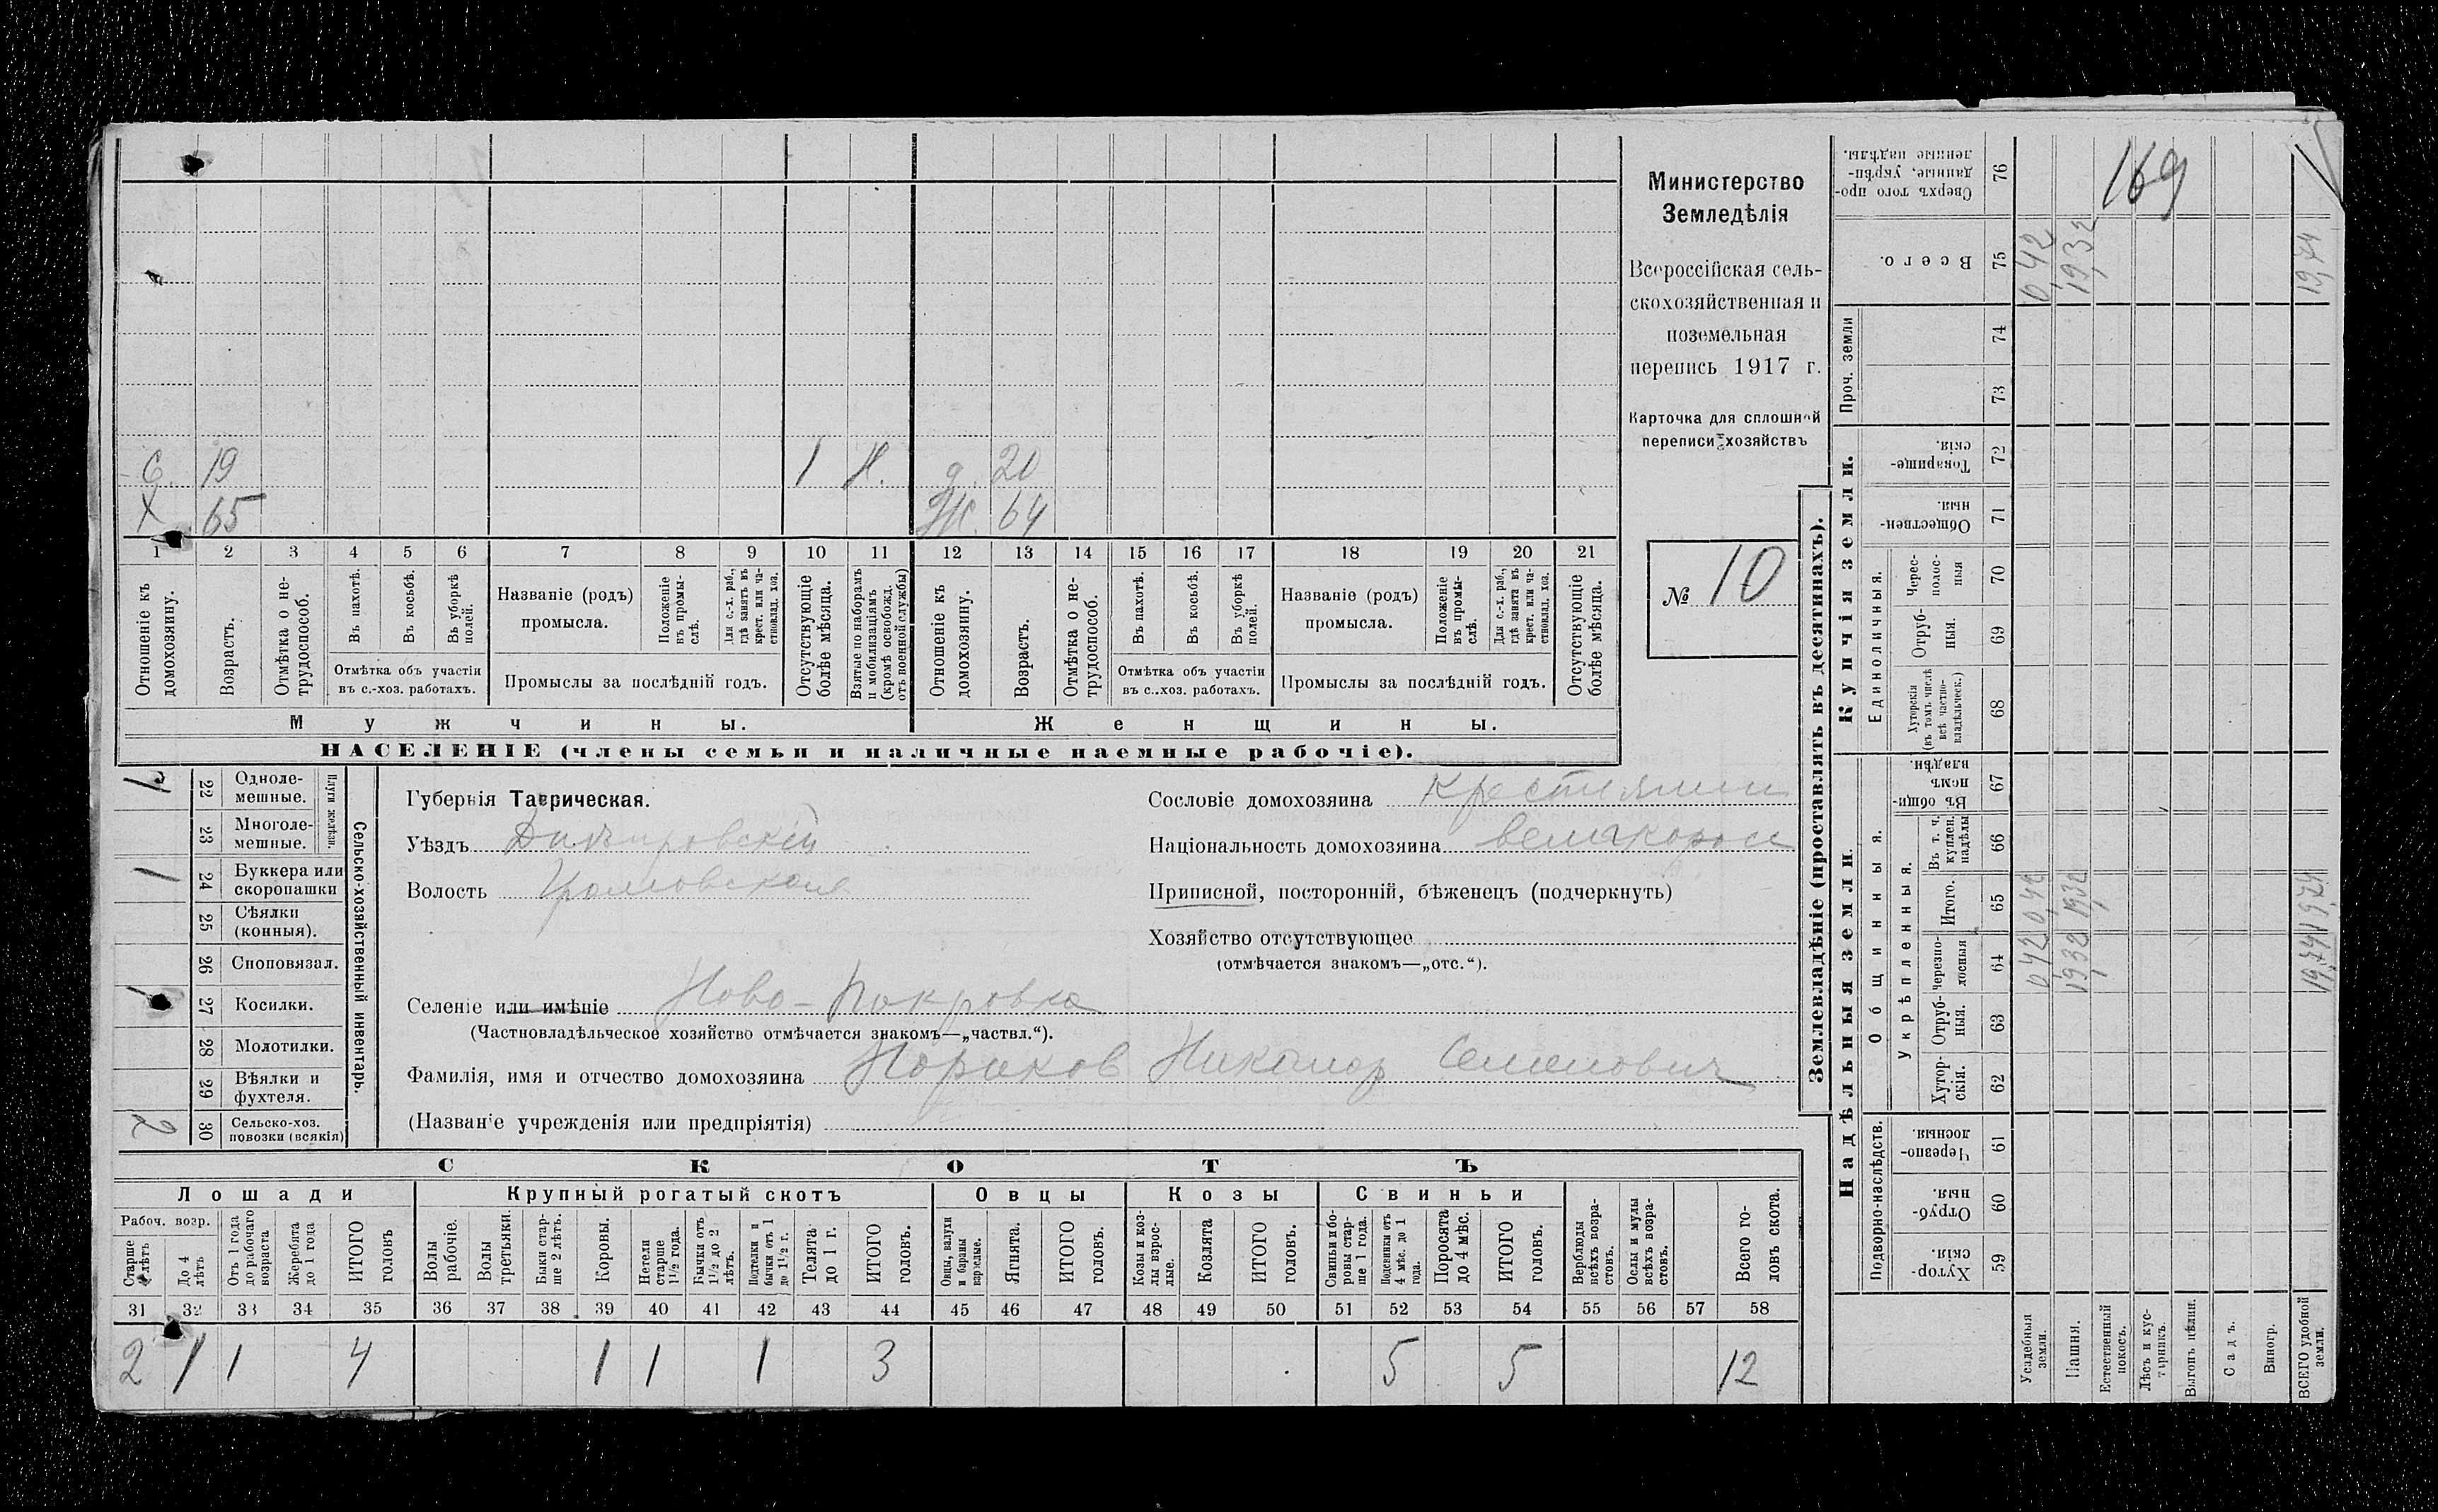 С. 19 1 Н. д. 20
Х 65 Ж. 64
1 2 3 4 5 6 7 8 9 10 11 12 13 14 15 16 17 18 19 20 21
Отношеніе къ домохозяину.
Возрастъ.
Отмѣтка о не-трудоспособ.
Въ пахотѣ.
Въ косьбѣ.
Въ уборкѣ полей.
Отмѣтка объ участіи
въ с.-хоз. работахъ.
Названіе (родъ)
промысла.
Положеніе въ промы-слѣ.
Для с.-х. раб., гдѣ занятъ въ крест. или ча-стновлад. хоз.
Промыслы за послѣдній годъ.
Отсутствующіе болѣе мѣсяца.
Взятые по наборамъ и мобилизаціямъ (кромѣ освобожд. отъ военной службы)
Отношеніе къ домохозяину.
Возрастъ.
Отмѣтка о не-трудоспособ.
Въ пахотѣ.
Въ косьбѣ.
Въ уборкѣ полей.
Отмѣтка объ участіи
въ с..хоз. работахъ.
Названіе (родъ)
промысла.
Положеніе въ промы-слѣ.
Для с.-х. раб., гдѣ занята въ крест. или ча-стновлад. хоз.
Промыслы за послѣдній годъ.
Отсутствующіе болѣе мѣсяца.
Мужчины. Женщины.
НАСЕЛЕНІЕ (члены семьи и наличные наемные рабочіе).
Министерство
Земледѣлія
Всероссійская сель-
скохозяйственная и
поземельная
перепись 1917 г.
Карточка для сплошной
переписи хозяйствъ
№ 10
22 Одноле-мешные.
23 Многоле-мешные.
Плуги желѣзн.
1 24 Буккера или скоропашки
25 Сѣялки (конныя).
26 Сноповязал.
27 Косилки.
28 Молотилки.
29 Вѣялки и фухтеля.
2 30 Сельско-хоз. повозки (всякія)
Сельско-хозяйственный инвентарь.
Губернія Таврическая.
Уѣздъ Днѣпровскій
Волость
Селеніе или имѣніе Ново-Покровка
(Частновладѣльческое хозяйство отмѣчается знакомъ—„частвл.“).
Фамилія, имя и отчество домохозяина Никанор Семенович
(Названіе учрежденія или предпріятія)
Сословіе домохозяина крестьянин
Національность домохозяина великоросс
Приписной, посторонній, бѣженецъ (подчеркнуть)
Хозяйство отсутствующее
(отмѣчается знакомъ—„отс.“).
СКОТЪ
Лошади Крупный рогатый скотъ Овцы Козы Свиньи
Рабоч. возр.
Старше 4 лѣтъ
До 4 лѣтъ
Отъ 1 года до рабочаго возраста
Жеребята до 1 года
ИТОГО головъ
Волы рабочіе.
Волы третьяки.
Быки стар-ше 2 лѣтъ.
Коровы.
Нетели старше 1½ года.
Бычки отъ 1½ до 2 лѣтъ.
Подтелки и бычки отъ 1 до 1½ г.
Телята до 1 г.
ИТОГО головъ.
Овцы, валухи и бараны взрослые.
Ягнята.
ИТОГО головъ.
Козы и коз-лы взрос-лые.
Козлята
ИТОГО головъ.
Свиньи и бо-ровы стар-ше 1 года.
Подсвинки отъ 4 мѣс. до 1 года.
Поросята до 4 мѣс.
ИТОГО головъ.
Верблюды всѣхъ возра-стовъ.
Ослы и мулы всѣхъ возра-стовъ.
Всего го-ловъ скота.
31 32 33 34 35 36 37 38 39 40 41 42 43 44 45 46 47 48 49 50 51 52 53 54 55 56 57 58
2 1 1 4 1 1 1 3 5 5 12
Землевладѣніе (проставлять въ десятинахъ).
Надѣльныя земли Купчія земли. Проч. земли
Подворно-наслѣдств. Общинныя. Укрѣпленныя. Единоличныя.
76 Сверхъ того про-данные, укрѣп-ленные надѣлы.
169
75 Всего. 0,42 19,32 19,74
74
73
72 Товарище-скія.
71 Обществен-ныя.
70 Черес-полос-ныя
69 Отруб-ныя.
68 Хуторскія (въ томъ числѣ всѣ частно-владѣльческ.)
67 Въ общин-номъ владѣн.
66 Въ т. ч. куплен. надѣлы
65 Итого. 0,42 19,32 19,74
64 Черезпо-лосныя 0,42 19,32 19,74
63 Отруб-ныя.
62 Хутор-скія.
61 Черезпо-лосныя.
60 Отруб-ныя.
59 Хутор-скія.
Усадебныя земли.
Пашня.
Естественный покосъ.
Лѣсъ и кус-тарникъ.
Выгонъ цѣлин.
Садъ.
Виногр.
ВСЕГО удобной земли.